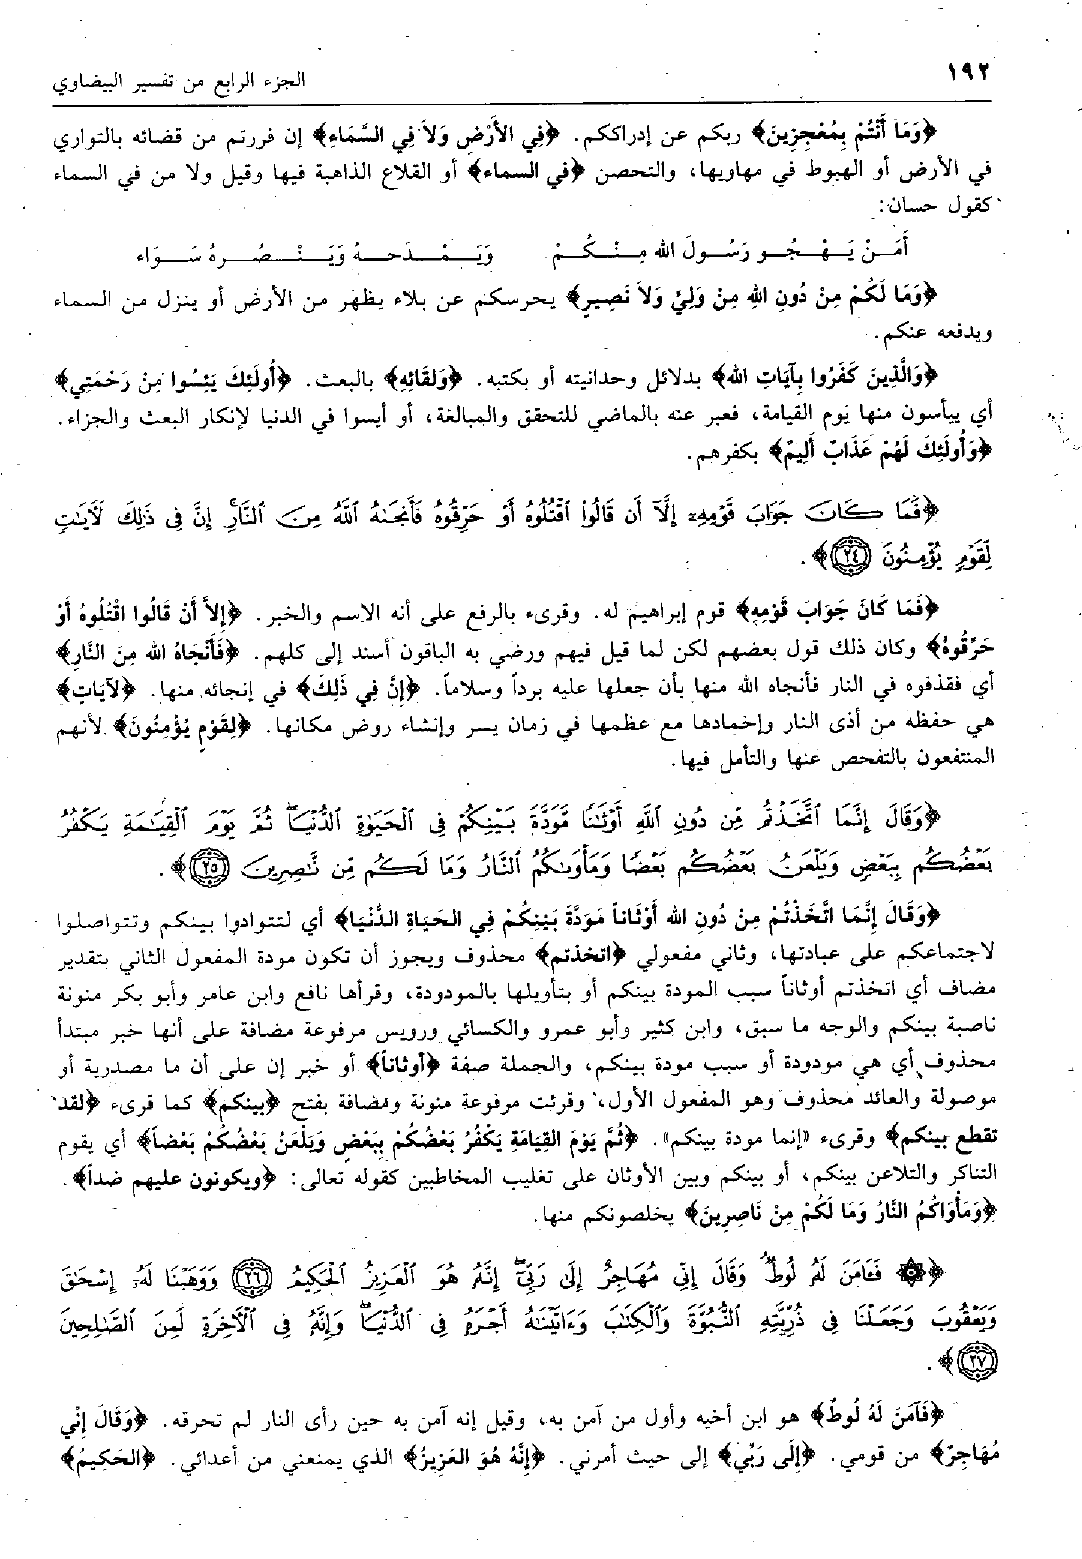 ١٩٢
الجزء الرابع من تفسير البيضاوي
﴿وَمَا أَنْتُمْ بِمُعْجِزِينَ﴾ ربكم عن إدراككم. ﴿فِي الأَرْضِ وَلاَ فِي السَّمَاءِ﴾ إن فررتم من قضائه بالتواري
في الأرض أو الهبوط في مهاويها، والتحصن ﴿في السماء﴾ أو القلاع الذاهبة فيها وقيل ولا من في السماء
كقول حسان:
أَمَـنْ يَـهْـجُـو رَسُـولَ الله مِـنْـكُـمْ وَيَـمْـدَحـهُ وَيَـنْـصُـرهُ سَـوَاء
﴿وَمَا لَكُمْ مِنْ دُونِ اللهِ مِنْ وَلِيٍّ وَلاَ نَصِيرٍ﴾ يحرسكم عن بلاء يظهر من الأرض أو ينزل من السماء
ويدفعه عنكم.
﴿وَالَّذِينَ كَفَرُوا بِآيَاتِ الله﴾ بدلائل وحدانيته أو بكتبه. ﴿وَلِقَائِهِ﴾ بالبعث. ﴿أُولَئِكَ يَئِسُوا مِنْ رَحْمَتِي﴾
أي ييأسون منها يوم القيامة، فعبر عنه بالماضي للتحقق والمبالغة، أو أيسوا في الدنيا لإنكار البعث والجزاء.
﴿وَأُولَئِكَ لَهُمْ عَذَابٌ أَلِيمٌ﴾ بكفرهم.
﴿فَمَا كَانَ جَوَابَ قَوْمِهِۦٓ إِلَّآ أَن قَالُوا۟ ٱقْتُلُوهُ أَوْ حَرِّقُوهُ فَأَنجَىٰهُ ٱللَّهُ مِنَ ٱلنَّارِ إِنَّ فِى ذَٰلِكَ لَءَايَـٰتٍ
لِّقَوْمٍ يُؤْمِنُونَ ٢٤﴾.
﴿فَمَا كَانَ جَوَابَ قَوْمِهِ﴾ قوم إبراهيم له. وقرىء بالرفع على أنه الاسم والخبر. ﴿إِلاَّ أَنْ قَالُوا اقْتُلُوهُ أَوْ
حَرِّقُوهُ﴾ وكان ذلك قول بعضهم لكن لما قيل فيهم ورضي به الباقون أسند إلى كلهم. ﴿فَأَنْجَاهُ الله مِنَ النَّارِ﴾
أي فقذفوه في النار فأنجاه الله منها بأن جعلها عليه برداً وسلاماً. ﴿إِنَّ فِي ذَلِكَ﴾ في إنجائه منها. ﴿لآيَاتٍ﴾
هي حفظه من أذى النار وإخمادها مع عظمها في زمان يسر وإنشاء روض مكانها. ﴿لِقَوْمٍ يُؤْمِنُونَ﴾ لأنهم
المنتفعون بالتفحص عنها والتأمل فيها.
﴿وَقَالَ إِنَّمَا ٱتَّخَذْتُم مِّن دُونِ ٱللَّهِ أَوْثَـٰنًا مَّوَدَّةَ بَيْنِكُمْ فِى ٱلْحَيَوٰةِ ٱلدُّنْيَا ۖ ثُمَّ يَوْمَ ٱلْقِيَـٰمَةِ يَكْفُرُ
بَعْضُكُم بِبَعْضٍ وَيَلْعَنُ بَعْضُكُم بَعْضًا وَمَأْوَىٰكُمُ ٱلنَّارُ وَمَا لَكُم مِّن نَّـٰصِرِينَ ٢٥﴾.
﴿وَقَالَ إِنَّمَا اتَّخَذْتُمْ مِنْ دُونِ الله أَوْثَاناً مَوَدَّةَ بَيْنِكُمْ فِي الحَيَاةِ الدُّنْيَا﴾ أي لتتوادوا بينكم وتتواصلوا
لاجتماعكم على عبادتها، وثاني مفعولي ﴿اتخذتم﴾ محذوف ويجوز أن تكون مودة المفعول الثاني بتقدير
مضاف أي اتخذتم أوثاناً سبب المودة بينكم أو بتأويلها بالمودودة، وقرأها نافع وابن عامر وأبو بكر منونة
ناصبة بينكم والوجه ما سبق، وابن كثير وأبو عمرو والكسائي ورويس مرفوعة مضافة على أنها خبر مبتدأ
محذوف أي هي مودودة أو سبب مودة بينكم، والجملة صفة ﴿أوثاناً﴾ أو خبر إن على أن ما مصدرية أو
موصولة والعائد محذوف وهو المفعول الأول، وقرئت مرفوعة منونة ومضافة بفتح ﴿بينكم﴾ كما قرىء ﴿لقد
تقطع بينكم﴾ وقرىء «إنما مودة بينكم». ﴿ثُمَّ يَوْمَ القِيَامَةِ يَكْفُرُ بَعْضُكُمْ بِبَعْضٍ وَيَلْعَنُ بَعْضُكُمْ بَعْضاً﴾ أي يقوم
التناكر والتلاعن بينكم، أو بينكم وبين الأوثان على تغليب المخاطبين كقوله تعالى: ﴿ويكونون عليهم ضداً﴾.
﴿وَمَأْوَاكُمُ النَّارُ وَمَا لَكُمْ مِنْ نَاصِرِينَ﴾ يخلصونكم منها.
﴿۞ فَـَٔامَنَ لَهُۥ لُوطٌ وَقَالَ إِنِّى مُهَاجِرٌ إِلَىٰ رَبِّىٓ ۖ إِنَّهُۥ هُوَ ٱلْعَزِيزُ ٱلْحَكِيمُ ٢٦ وَوَهَبْنَا لَهُۥٓ إِسْحَـٰقَ
وَيَعْقُوبَ وَجَعَلْنَا فِى ذُرِّيَّتِهِ ٱلنُّبُوَّةَ وَٱلْكِتَـٰبَ وَءَاتَيْنَـٰهُ أَجْرَهُۥ فِى ٱلدُّنْيَا ۖ وَإِنَّهُۥ فِى ٱلْـَٔاخِرَةِ لَمِنَ ٱلصَّـٰلِحِينَ
٢٧﴾.
﴿فَآمَنَ لَهُ لُوطٌ﴾ هو ابن أخيه وأول من آمن به، وقيل إنه آمن به حين رأى النار لم تحرقه. ﴿وَقَالَ إِنِّي
مُهَاجِرٌ﴾ من قومي. ﴿إِلَى رَبِّي﴾ إلى حيث أمرني. ﴿إِنَّهُ هُوَ العَزِيزُ﴾ الذي يمنعني من أعدائي. ﴿الحَكِيمُ﴾